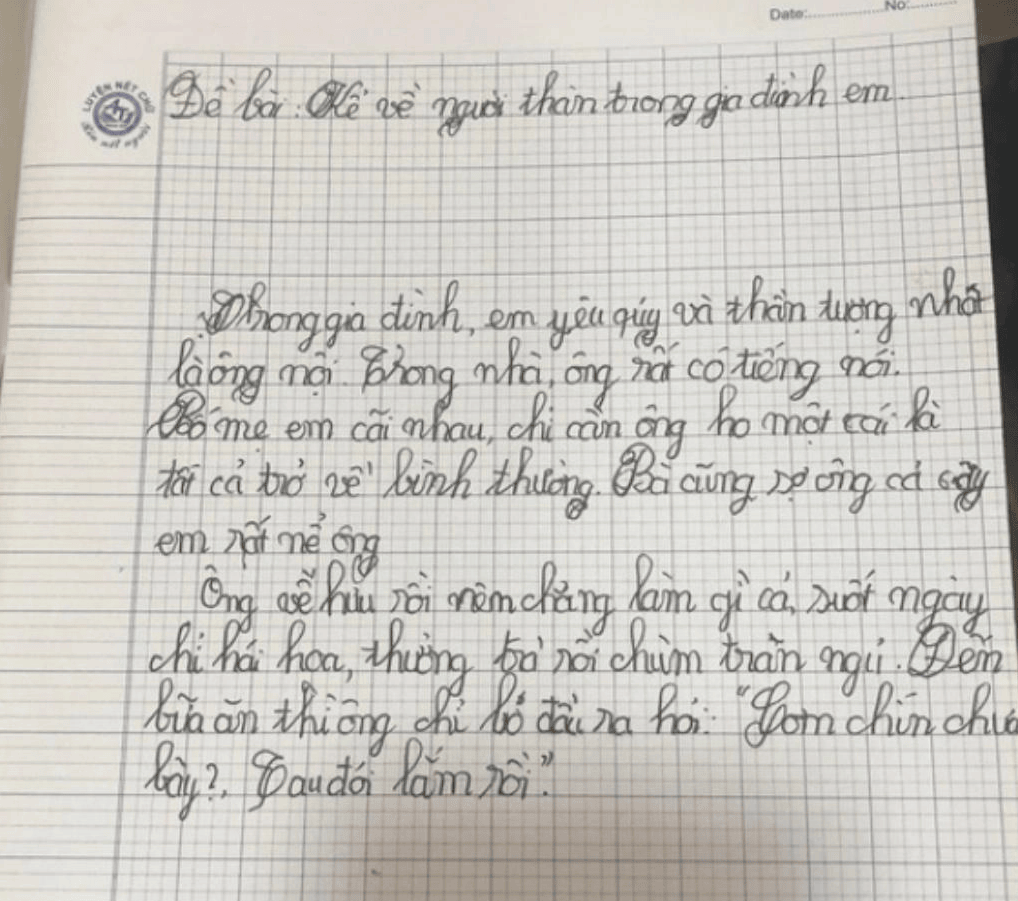 Date:............ No:............
LUYỆN NÉT CHỮ
Rèn nết người
Đề bài: Kể về người thân trong gia đình em.
Trong gia đình, em yêu qúy và thần tượng nhất
là ông nội. Trong nhà, ông rất có tiếng nói.
Bố mẹ em cãi nhau, chỉ cần ông ho một cái là
tất cả trở về bình thường. Bà cũng sợ ông cả
em rất nể ông
Ông về hưu rồi nên chẳng làm gì cả, suốt ngày
chỉ hái hoa, thưởng trà rồi chùm trăn ngủ. Đến
bữa ăn thì ông chỉ ló đầu ra hỏi: "Cơm chín chưa
bây?, Tau đói lắm rồi."